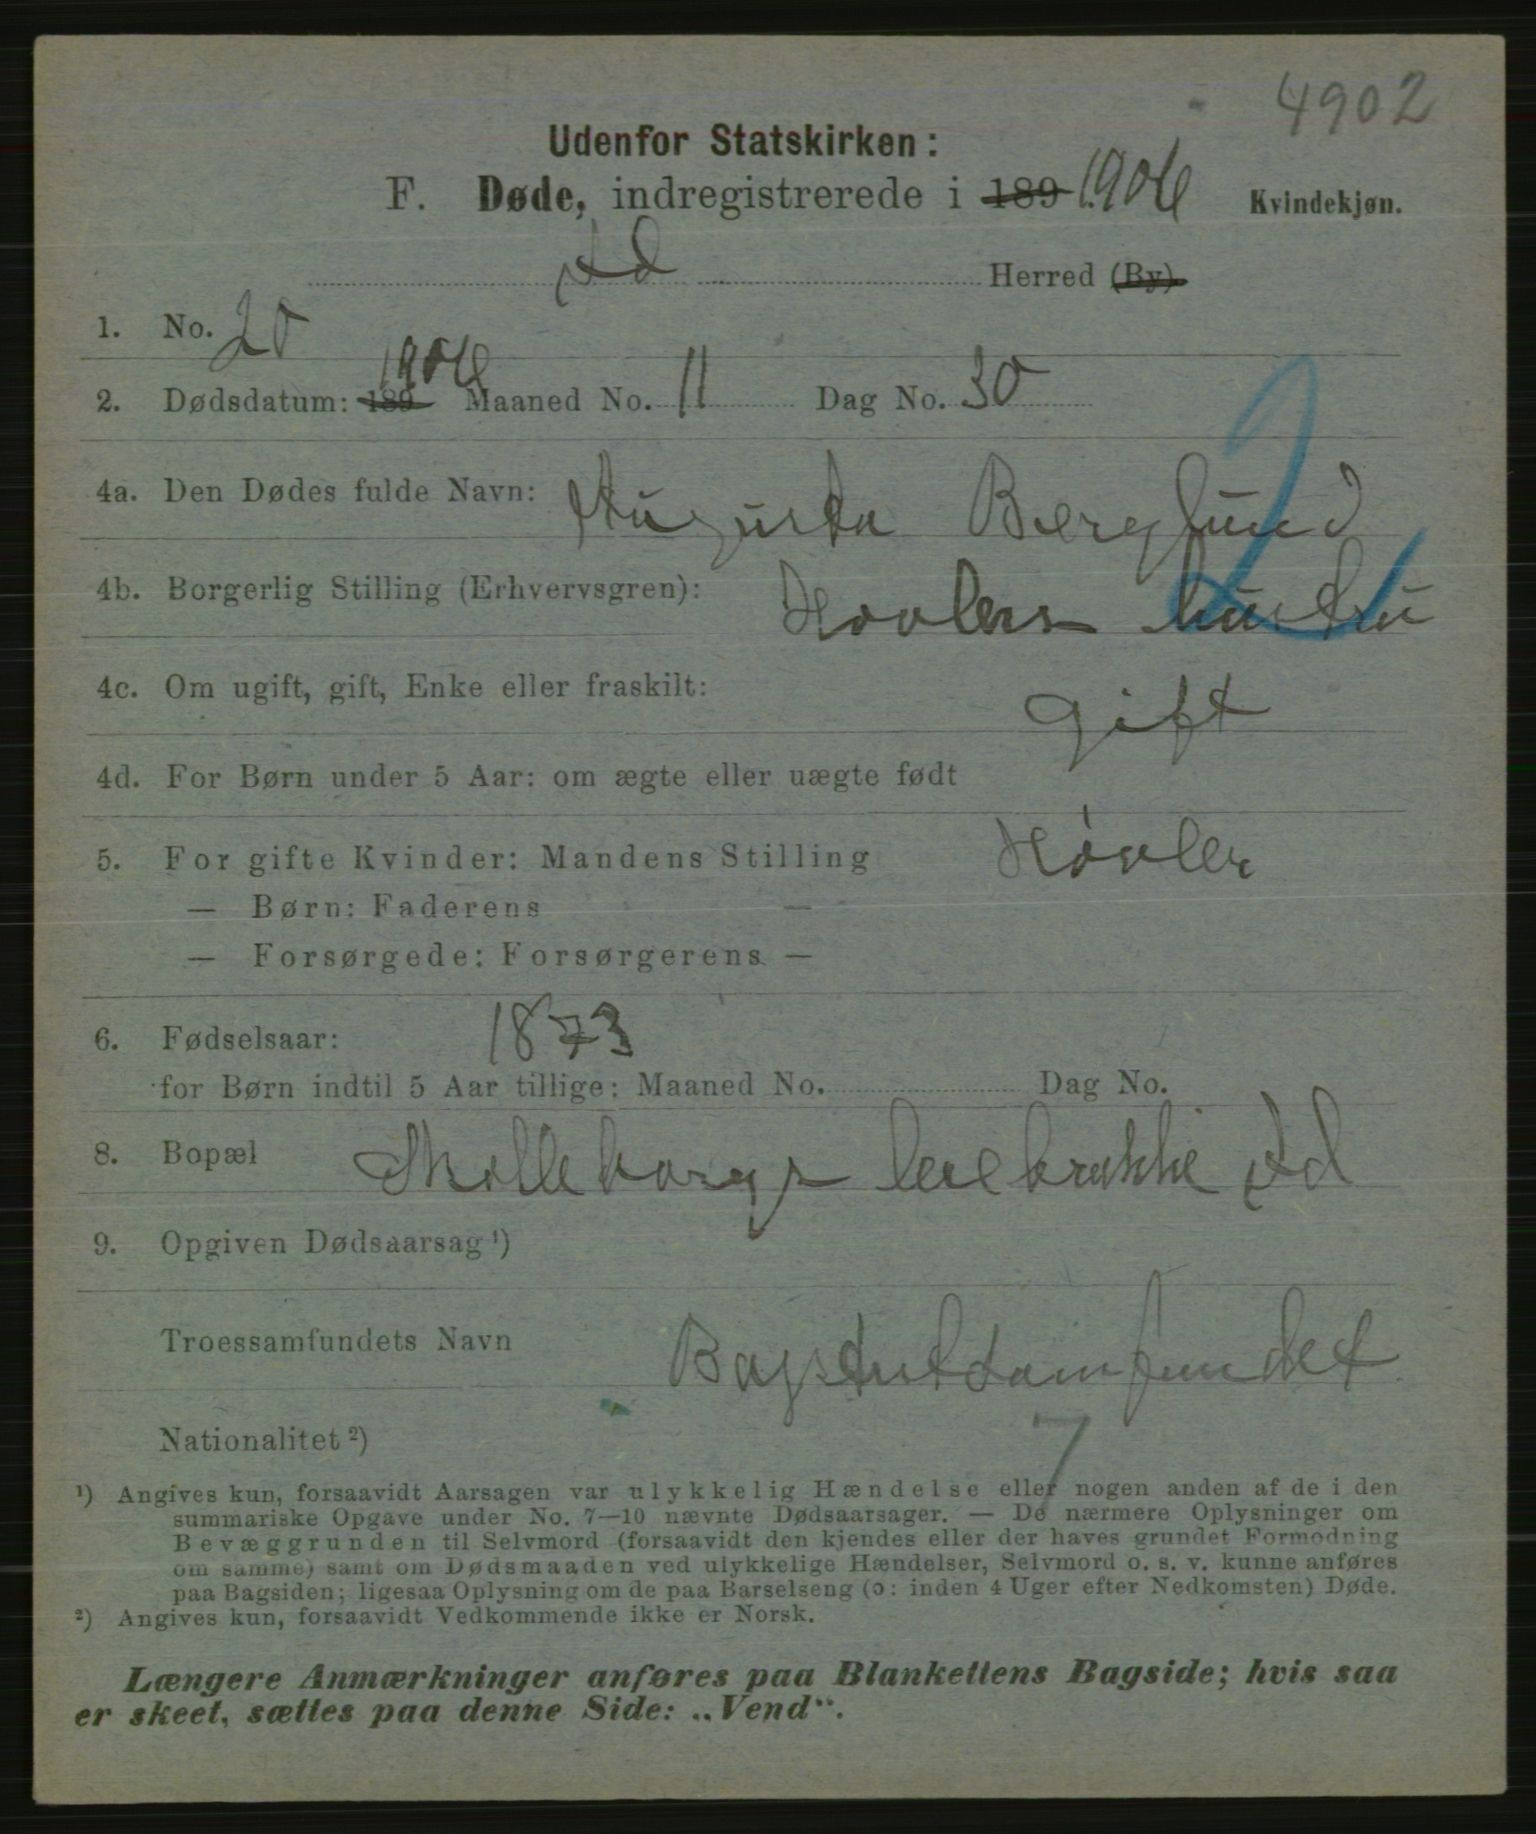 4902
Udenfor Statskirken:
F. Døde, indregistrerede i 189 1906 Kvindekjøn.
Id Herred (By)
1. No. 20
2. Dødsdatum: 189 1906 Maaned No. 11 Dag No. 30
4a. Den Dødes fulde Navn: Augusta Berglund
4b. Borgerlig Stilling (Erhvervsgren): Hovlers hustru
4c. Om ugift, gift, Enke eller fraskilt: gift
4d. For Børn under 5 Aar: om ægte eller uægte født
5. For gifte Kvinder: Mandens Stilling Høvler
— Børn: Faderens —
— Forsørgede: Forsørgerens —
6. Fødselsaar: 1873
for Børn indtil 5 Aar tillige: Maaned No. Dag No.
8. Bopæl Id
9. Opgiven Dødsaarsag ¹)
Troessamfundets Navn Baptistsamfundet
7
Nationalitet ²)
¹) Angives kun, forsaavidt Aarsagen var ulykkelig Hændelse eller nogen anden af de i den
summariske Opgave under No. 7—10 nævnte Dødsaarsager. — De nærmere Oplysninger om
Bevæggrunden til Selvmord (forsaavidt den kjendes eller der haves grundet Formodning
om samme) samt om Dødsmaaden ved ulykkelige Hændelser, Selvmord o. s. v. kunne anføres
paa Bagsiden; ligesaa Oplysning om de paa Barselseng (ɔ: inden 4 Uger efter Nedkomsten) Døde.
²) Angives kun, forsaavidt Vedkommende ikke er Norsk.
Længere Anmærkninger anføres paa Blankettens Bagside; hvis saa
er skeet, sættes paa denne Side: „Vend“.